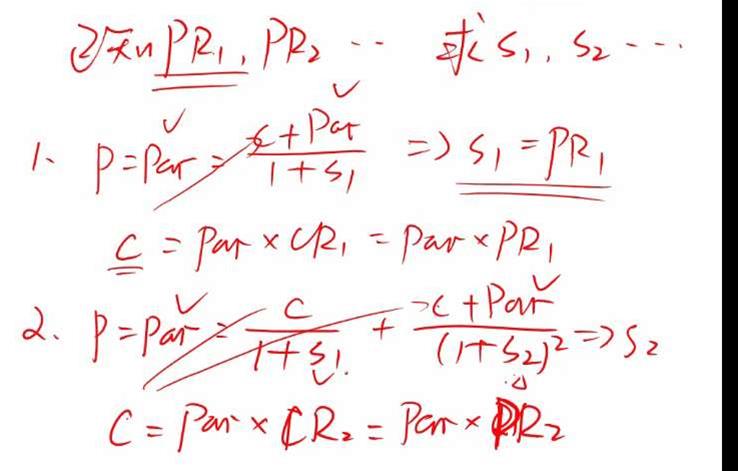 已知 PR₁, PR₂ ... 求 S₁, S₂ ...
1. P = Par = (C + Par)/(1 + S₁) => S₁ = PR₁
C = Par × CR₁ = Par × PR₁
2. P = Par = C/(1 + S₁) + (C + Par)/(1 + S₂)² => S₂
C = Par × CR₂ = Par × PR₂